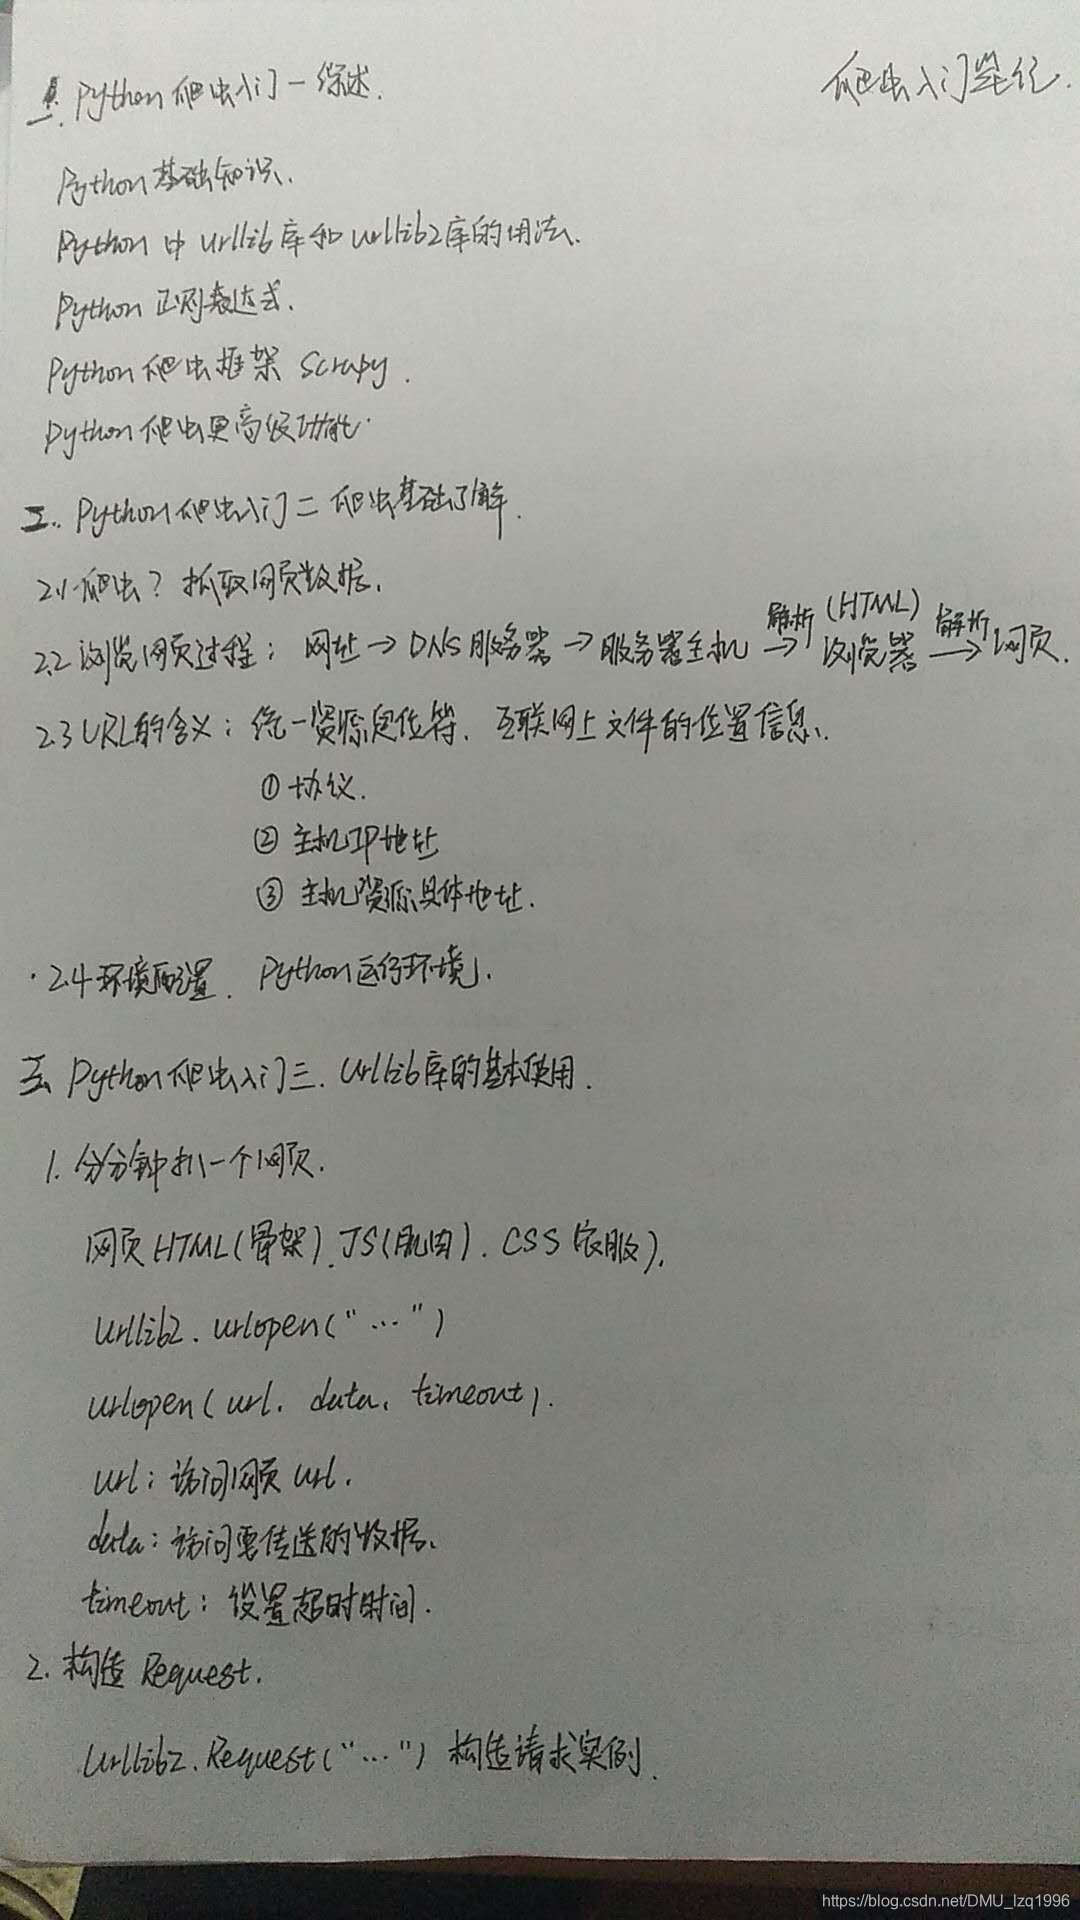 爬虫入门笔记.
一. Python爬虫入门一综述.
Python基础知识.
Python中urllib库和urllib2库的用法.
Python正则表达式.
Python爬虫框架 Scrapy.
Python爬虫更高级功能.
二. Python爬虫入门二 爬虫基础了解.
2.1 爬虫? 抓取网页数据.
2.2 浏览网页过程: 网址→DNS服务器→服务器主机 解析→ (HTML) 浏览器 解析→ 网页.
2.3 URL的含义: 统一资源定位符. 互联网上文件的位置信息.
① 协议.
② 主机IP地址
③ 主机资源具体地址.
2.4 环境配置. Python运行环境.
三 Python爬虫入门三. Urllib库的基本使用.
1. 分分钟扒一个网页.
网页HTML(骨架). JS(肌肉). CSS(衣服).
urllib2.urlopen("...")
urlopen(url, data, timeout).
url: 访问网页url.
data: 访问要传送的数据.
timeout: 设置超时时间.
2. 构造 Request.
Urllib2.Request("...") 构造请求实例.
https://blog.csdn.net/DMU_lzq1996